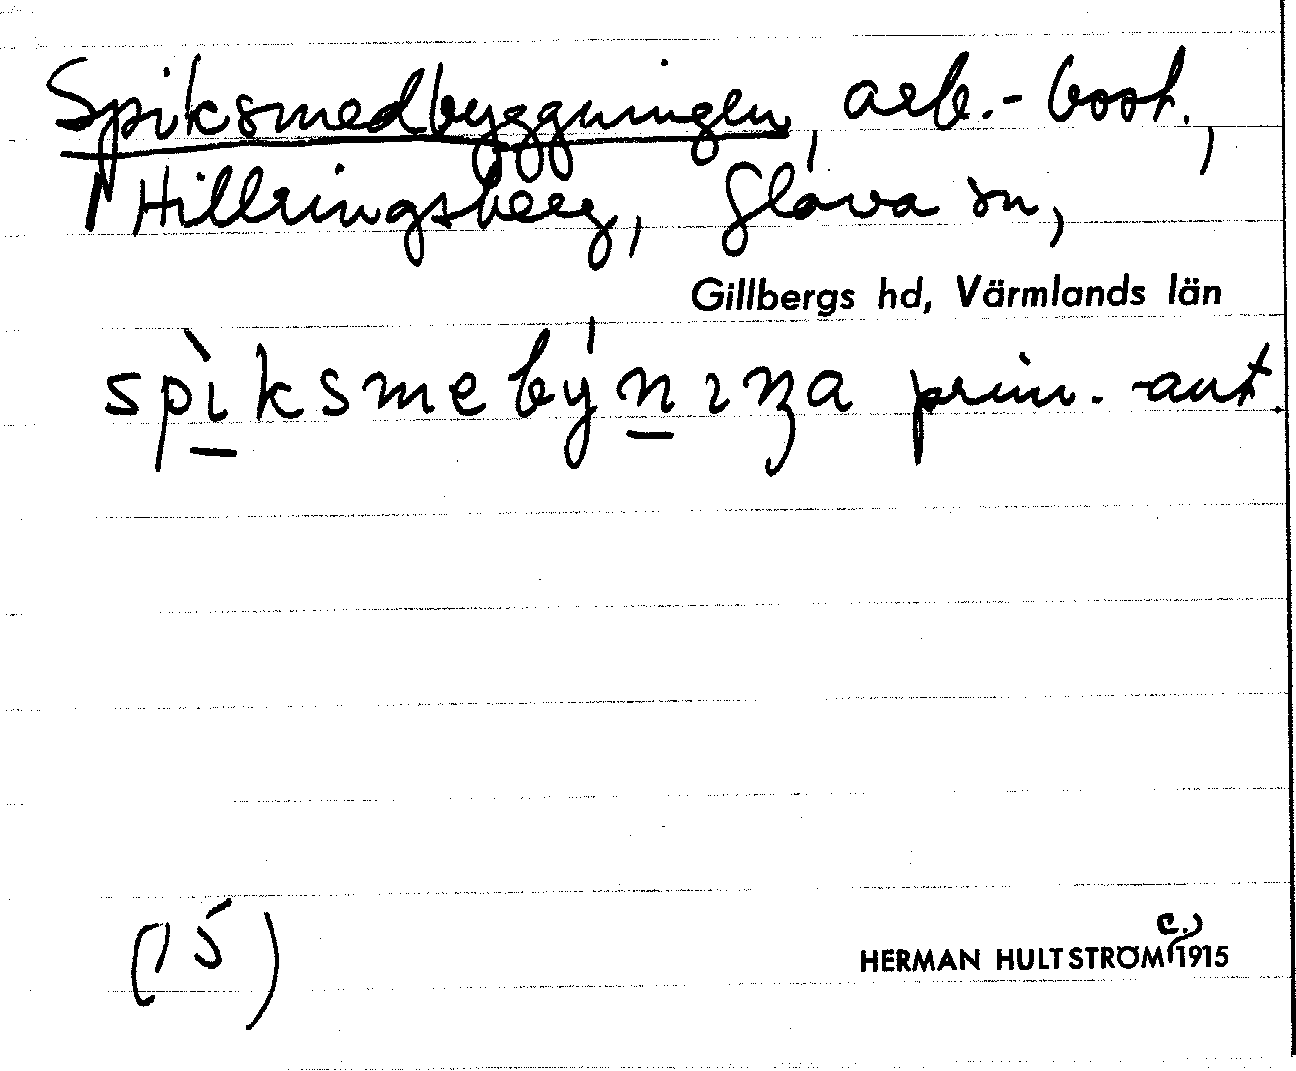 Spiksmedbyggningen, arb.-bost.,
Hillringsberg, Glava sn,
Gillbergs hd, Värmlands län
prim. -ant.
(15)
c.)
HERMAN HULTSTRÖM 1915